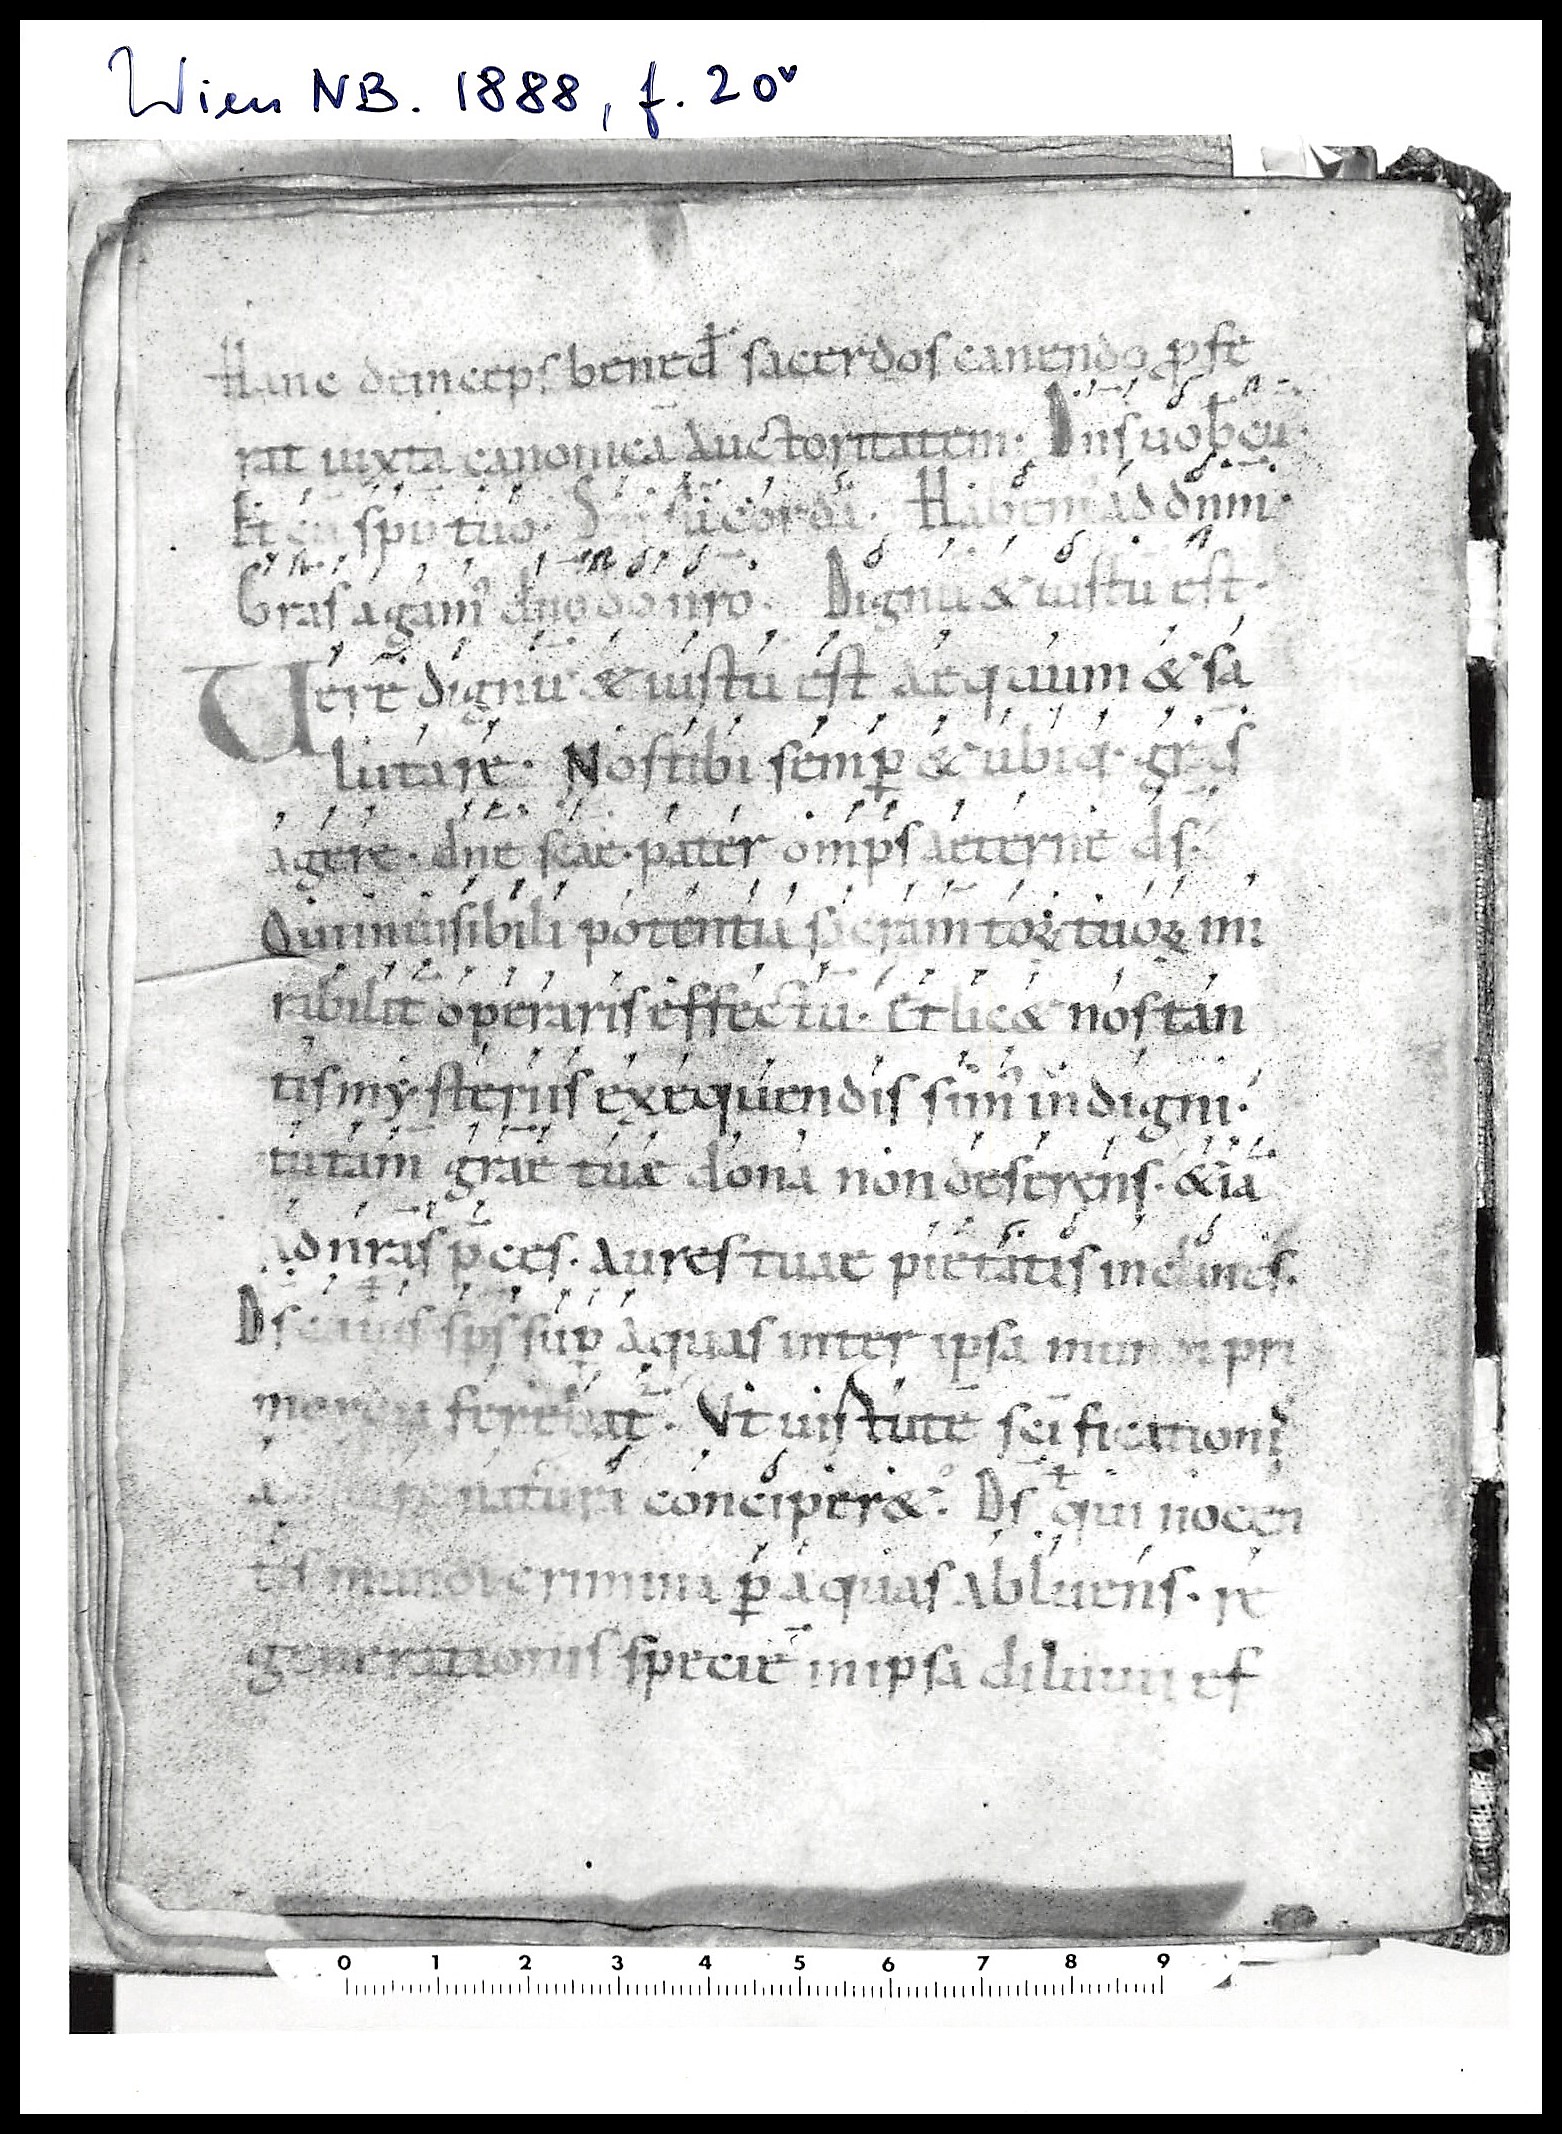 Wien NB. 1888, f. 20v
Hanc deinceps bened̄ sacerdos canendo ꝓfe
rat iuxta canonicā auctoritatem. Dn̄s uob̄ cū
Et cū spū tuo. Sur sū corda. Habem ad dn̄m.
Gr̄as agam᾽ dn̄o dō nr̄o. Dignū & iustū est.
Uere dignū & iustū est aequum & sa
lutare. Nos tibi semꝑ & ubiq. gr̄as
agere. dn̄e sc̄ae. pater om̄ps aeterne ds̄.
Qui inuisibili potentia sacram̄toꝝ tuoꝝ mi
rabilit̄ operaris effectū. Et lic& nos tan
tis mysteriis exequendis sim᾽ indigni.
tu tam̄ gr̄ae tuae dona non deserens. &iā
ad nr̄as p̄ces. aures tuae pietatis inclines.
Ds̄ cuius sp̄s suꝑ aquas inter ipsa mundi pri
mordia ferebat᾽. Ut uirtutē sc̄ificationis
aquarū natura conciper&. Ds̄ qui nocen
tis mundi crimina ꝑ aquas abluens. re
generationis speciē in ipsa diluuii ef
0 1 2 3 4 5 6 7 8 9